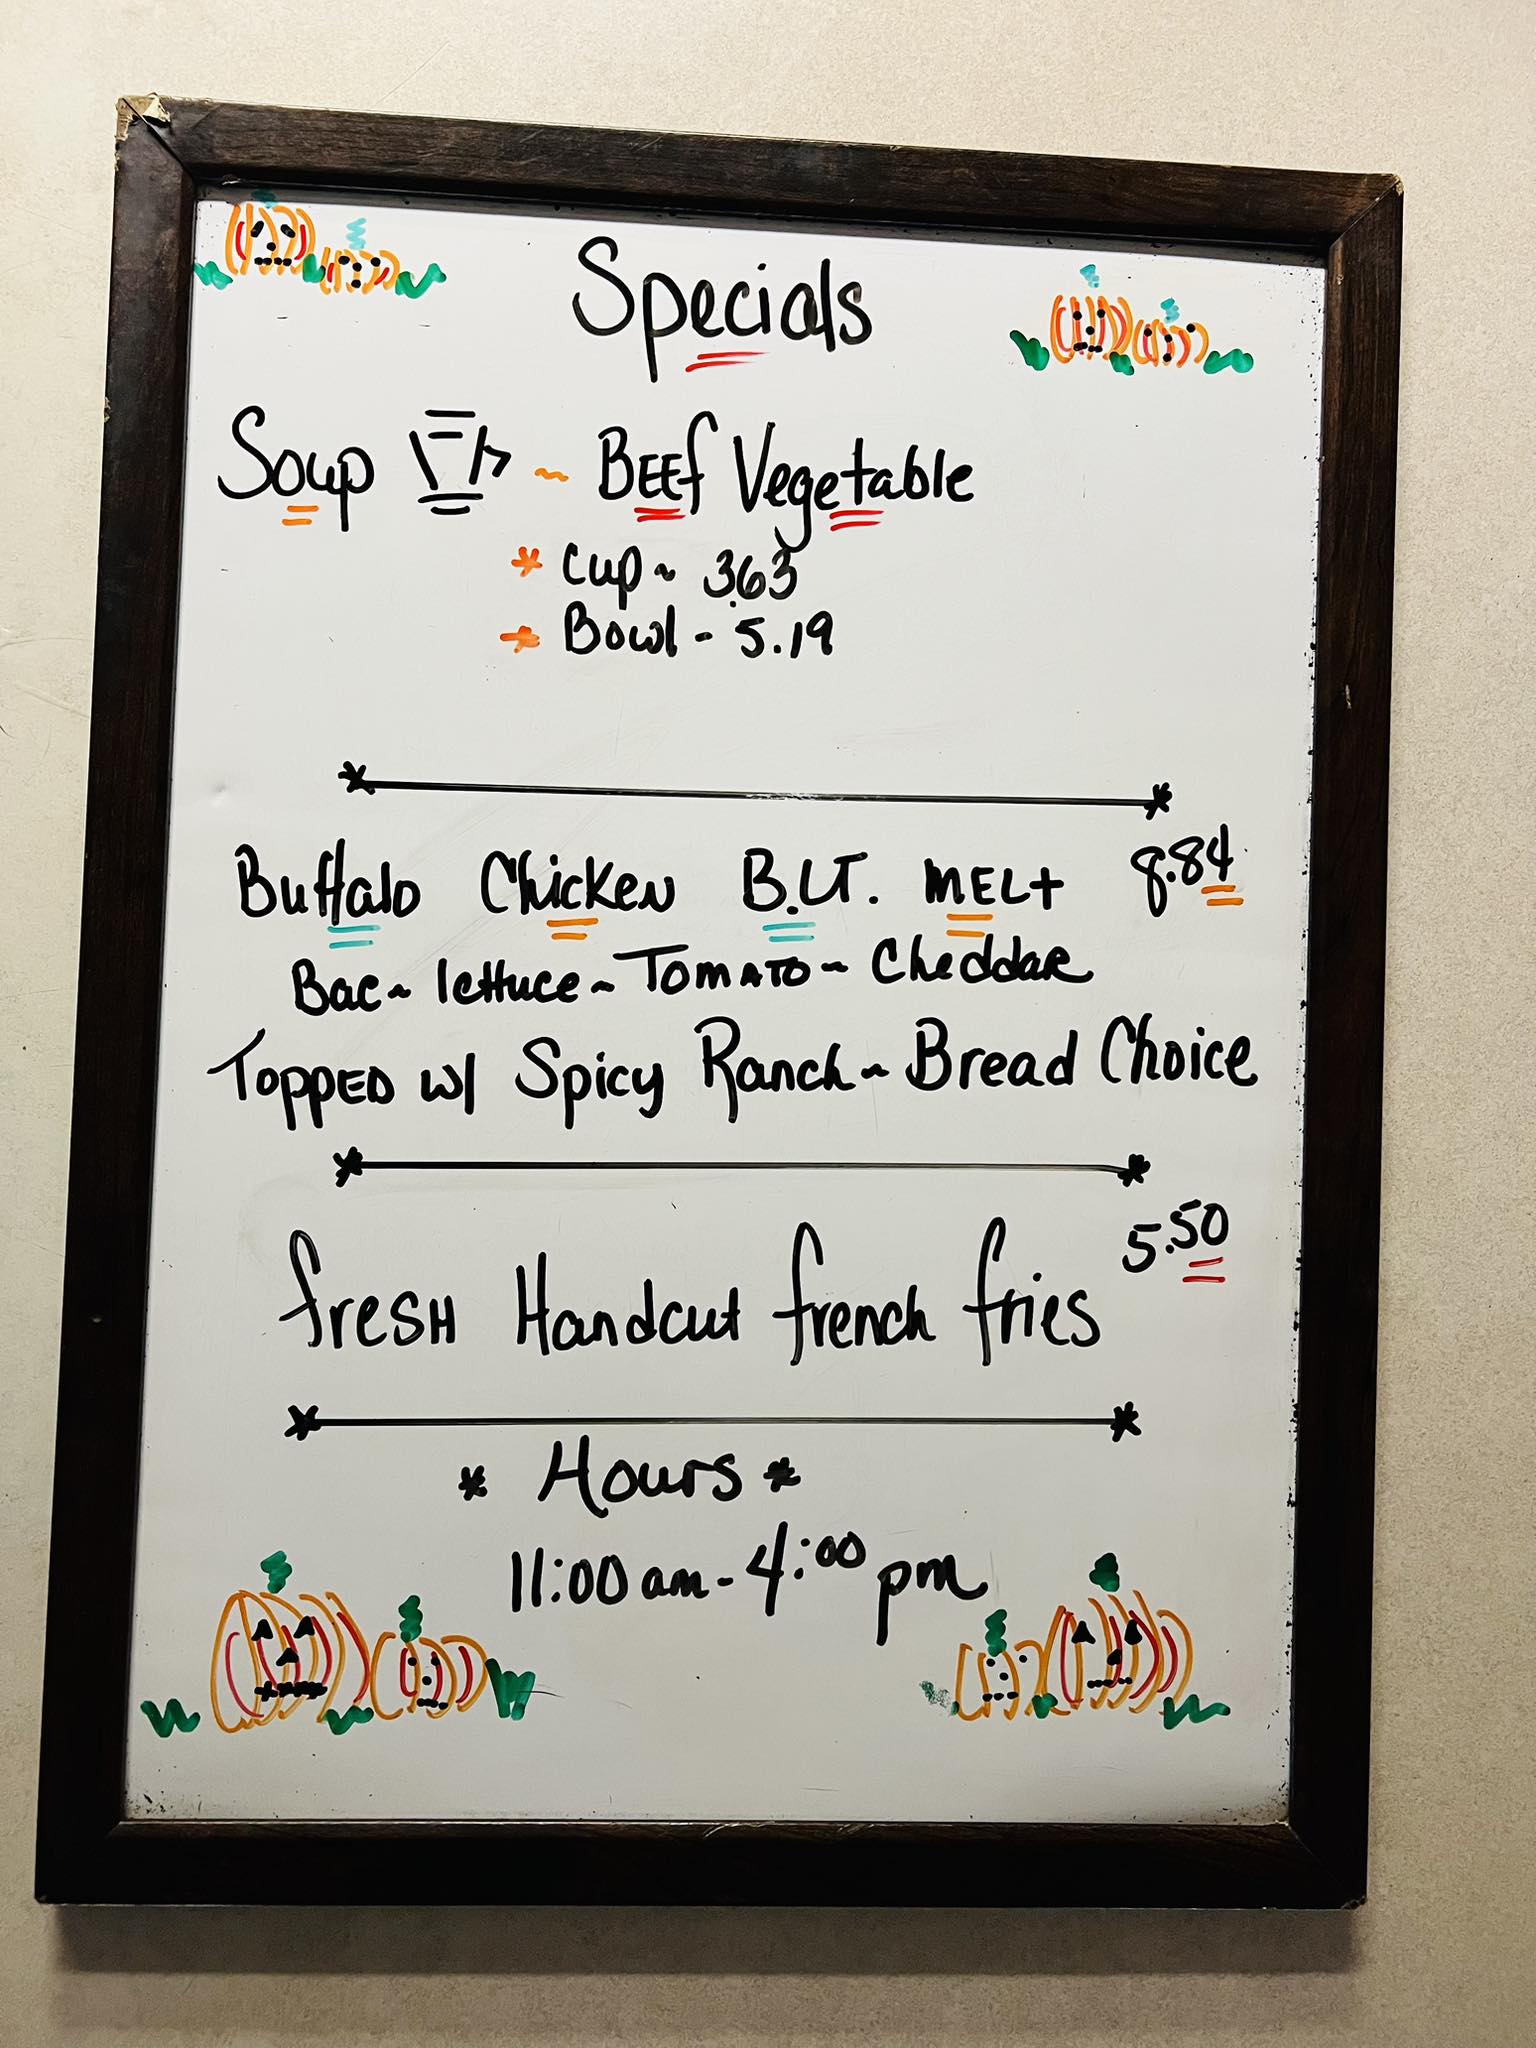 Specials
Soup ~ BEEf Vegetable
* Cup ~ 3.63
* Bowl - 5.19
Buffalo Chicken B.L.T. MELt 8.84
Bac ~ lettuce ~ TOMATO ~ Cheddar
TOPPED w/ Spicy Ranch ~ Bread Choice
fresH Handcut french fries 5.50
* Hours *
11:00 am - 4:00 pm